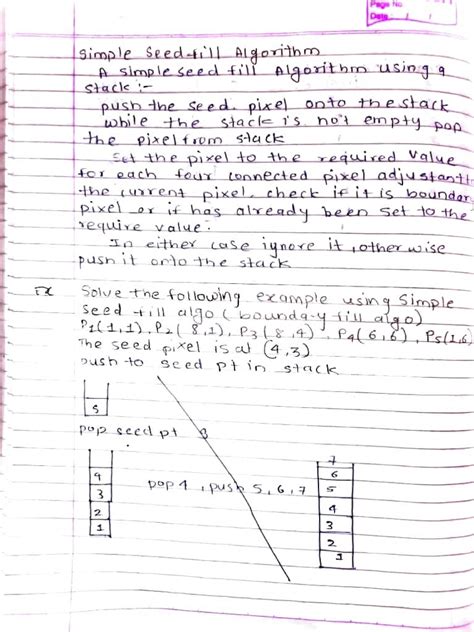 Page No.
Date
Simple Seed-fill Algorithm
A simple seed fill Algorithm using a
stack :-
push the seed pixel onto the stack
while the stack is not empty pop
the pixel from stack
Set the pixel to the required value
for each four connected pixel adjustant
the current pixel, check if it is boundar
pixel or if has already been set to the
require value.
In either case ignore it, otherwise
push it onto the stack
Ex Solve the following example using Simple
Seed fill algo ( bounda-y fill algo)
P1(1,1), P2( 8,1), P3( 8,4), P4( 6,6), P5(1,6)
The seed pixel is at (4,3)
push to seed pt in stack
S
pop seed pt
4
3
2
1
pop 4, push 5, 6, 7
7
6
5
4
3
2
1